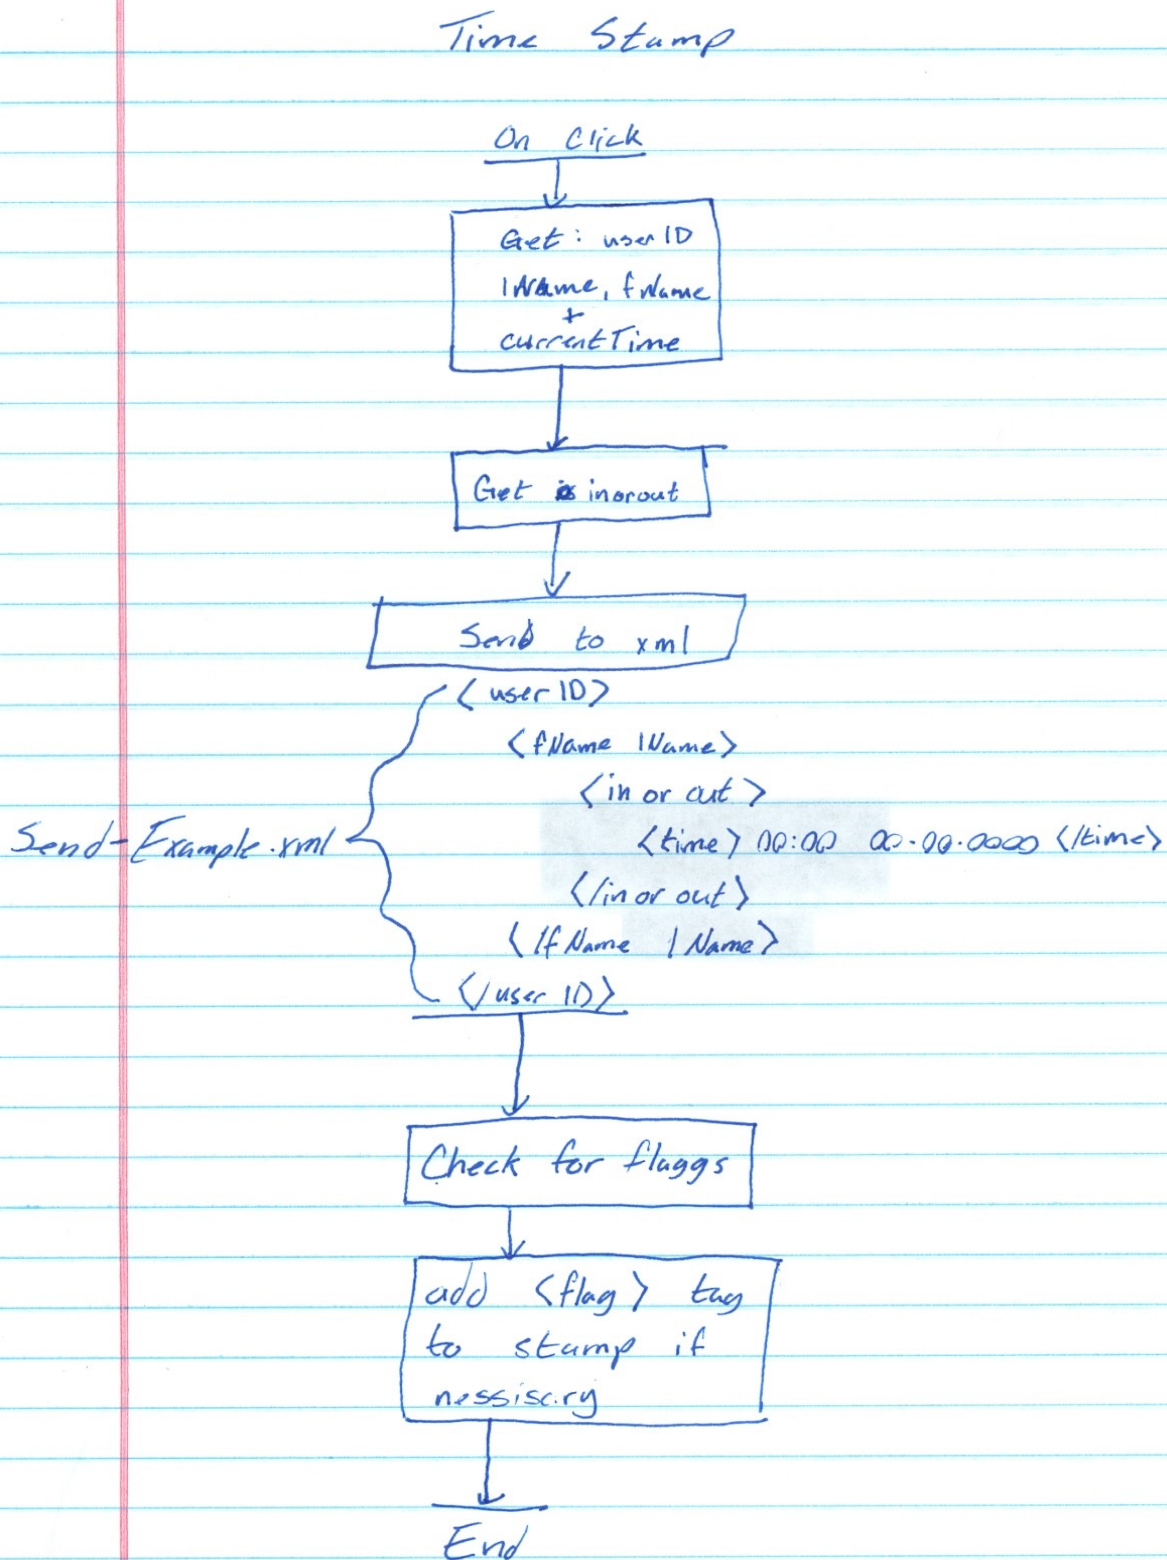 Time Stamp
On Click
Get: userID
lName, fName
+
currentTime
Get inorout
Send to xml
<userID>
<fName lName>
<in or out>
Send-Example.xml
<time> 00:00 00.00.0000 </time>
</in or out>
</fName lName>
</user ID>
Check for flaggs
add <flag> tag
to stamp if
nessisary
End